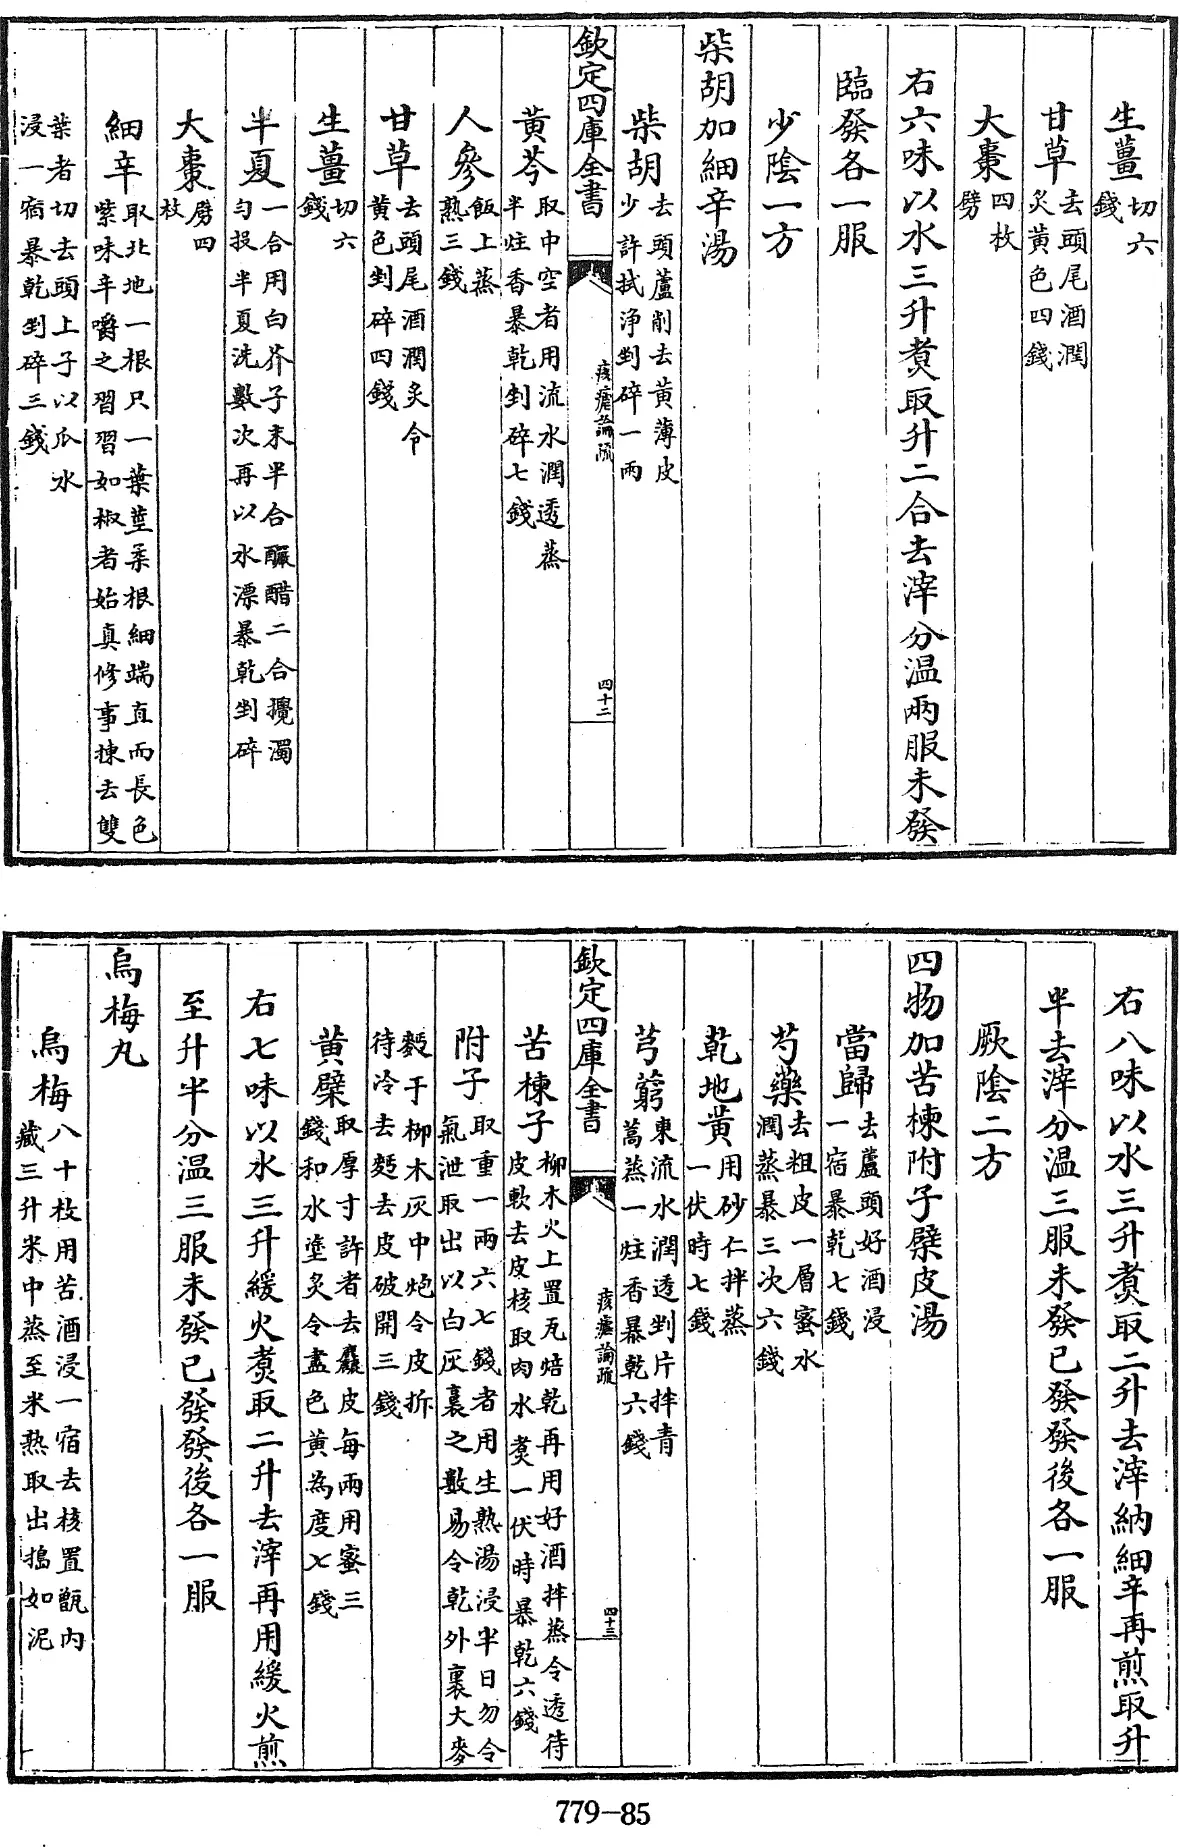 生薑切六錢
甘草去頭尾酒潤炙黄色四錢
大棗四枚劈
右六味以水三升煑取升二合去滓分温兩服未發
臨發各一服
少陰一方
柴胡加細辛湯
柴胡去頭蘆削去黄薄皮少許拭淨剉碎一兩
欽定四庫全書
痎瘧論疏
四十二
黄芩取中空者用流水潤透蒸半炷香暴乾剉碎七錢
人參飯上蒸熟三錢
甘草去頭尾酒潤炙令黄色剉碎四錢
生薑切六錢
半夏一合用白芥子末半合釅醋二合攪濁勻投半夏洗數次再以水漂暴乾剉碎
大棗劈四枚
細辛取北地一根只一葉莖柔根細端直而長色紫味辛嚼之習習如椒者始真修事揀去雙
葉者切去頭上子以瓜水浸一宿暴乾剉碎三錢
右八味以水三升煑取二升去滓納細辛再煎取升
半去滓分温三服未發已發發後各一服
厥陰二方
四物加苦楝附子檗皮湯
當歸去蘆頭好酒浸一宿暴乾七錢
芍藥去粗皮一層蜜水潤蒸暴三次六錢
乾地黄用砂仁拌蒸一伏時七錢
芎藭東流水潤透剉片拌青蒿蒸一炷香暴乾六錢
欽定四庫全書
痎瘧論疏
四十三
苦楝子柳木火上置瓦焙乾再用好酒拌蒸令透待皮軟去皮核取肉水煑一伏時暴乾六錢
附子取重一兩六七錢者用生熟湯浸半日勿令氣泄取出以白灰裹之數易令乾外裹大麥
麪于柳木灰中炮令皮拆待冷去麪去皮破開三錢
黄檗取厚寸許者去麤皮每兩用蜜三錢和水塗炙令盡色黄為度七錢
右七味以水三升緩火煑取二升去滓再用緩火煎
至升半分温三服未發已發發後各一服
烏梅丸
烏梅八十枚用苦酒浸一宿去核置甑内藏三升米中蒸至米熟取出搗如泥
779-85